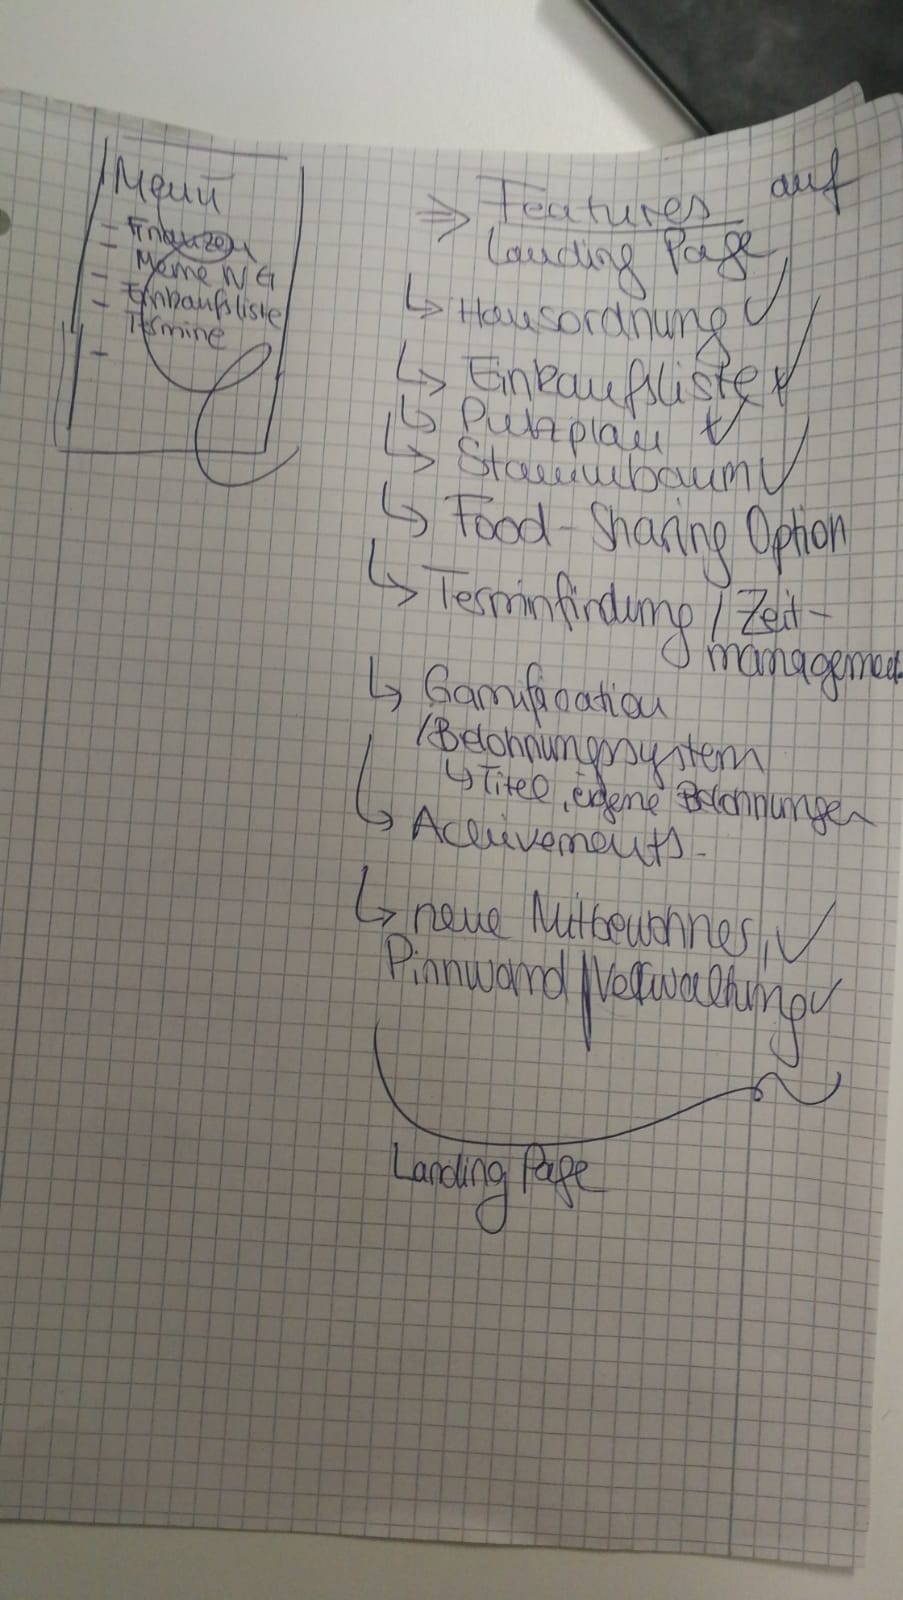 Menü
- Finanzen
- Meine WG
- Einkaufsliste
- Termine
-
⇒ Features auf
Landing Page
↳ Hausordnung ✓
↳ Einkaufsliste ✓
↳ Putzplan ✓
↳ Stammbaum ✓
↳ Food-Sharing Option
↳ Terminfindung / Zeit-
management
↳ Gamification
/Belohnungssystem
↳ Titel, eigene Belohnungen
↳ Achievements
↳ neue Mitbewohner, ✓
Pinnwand / Verwaltung ✓
Landing Page